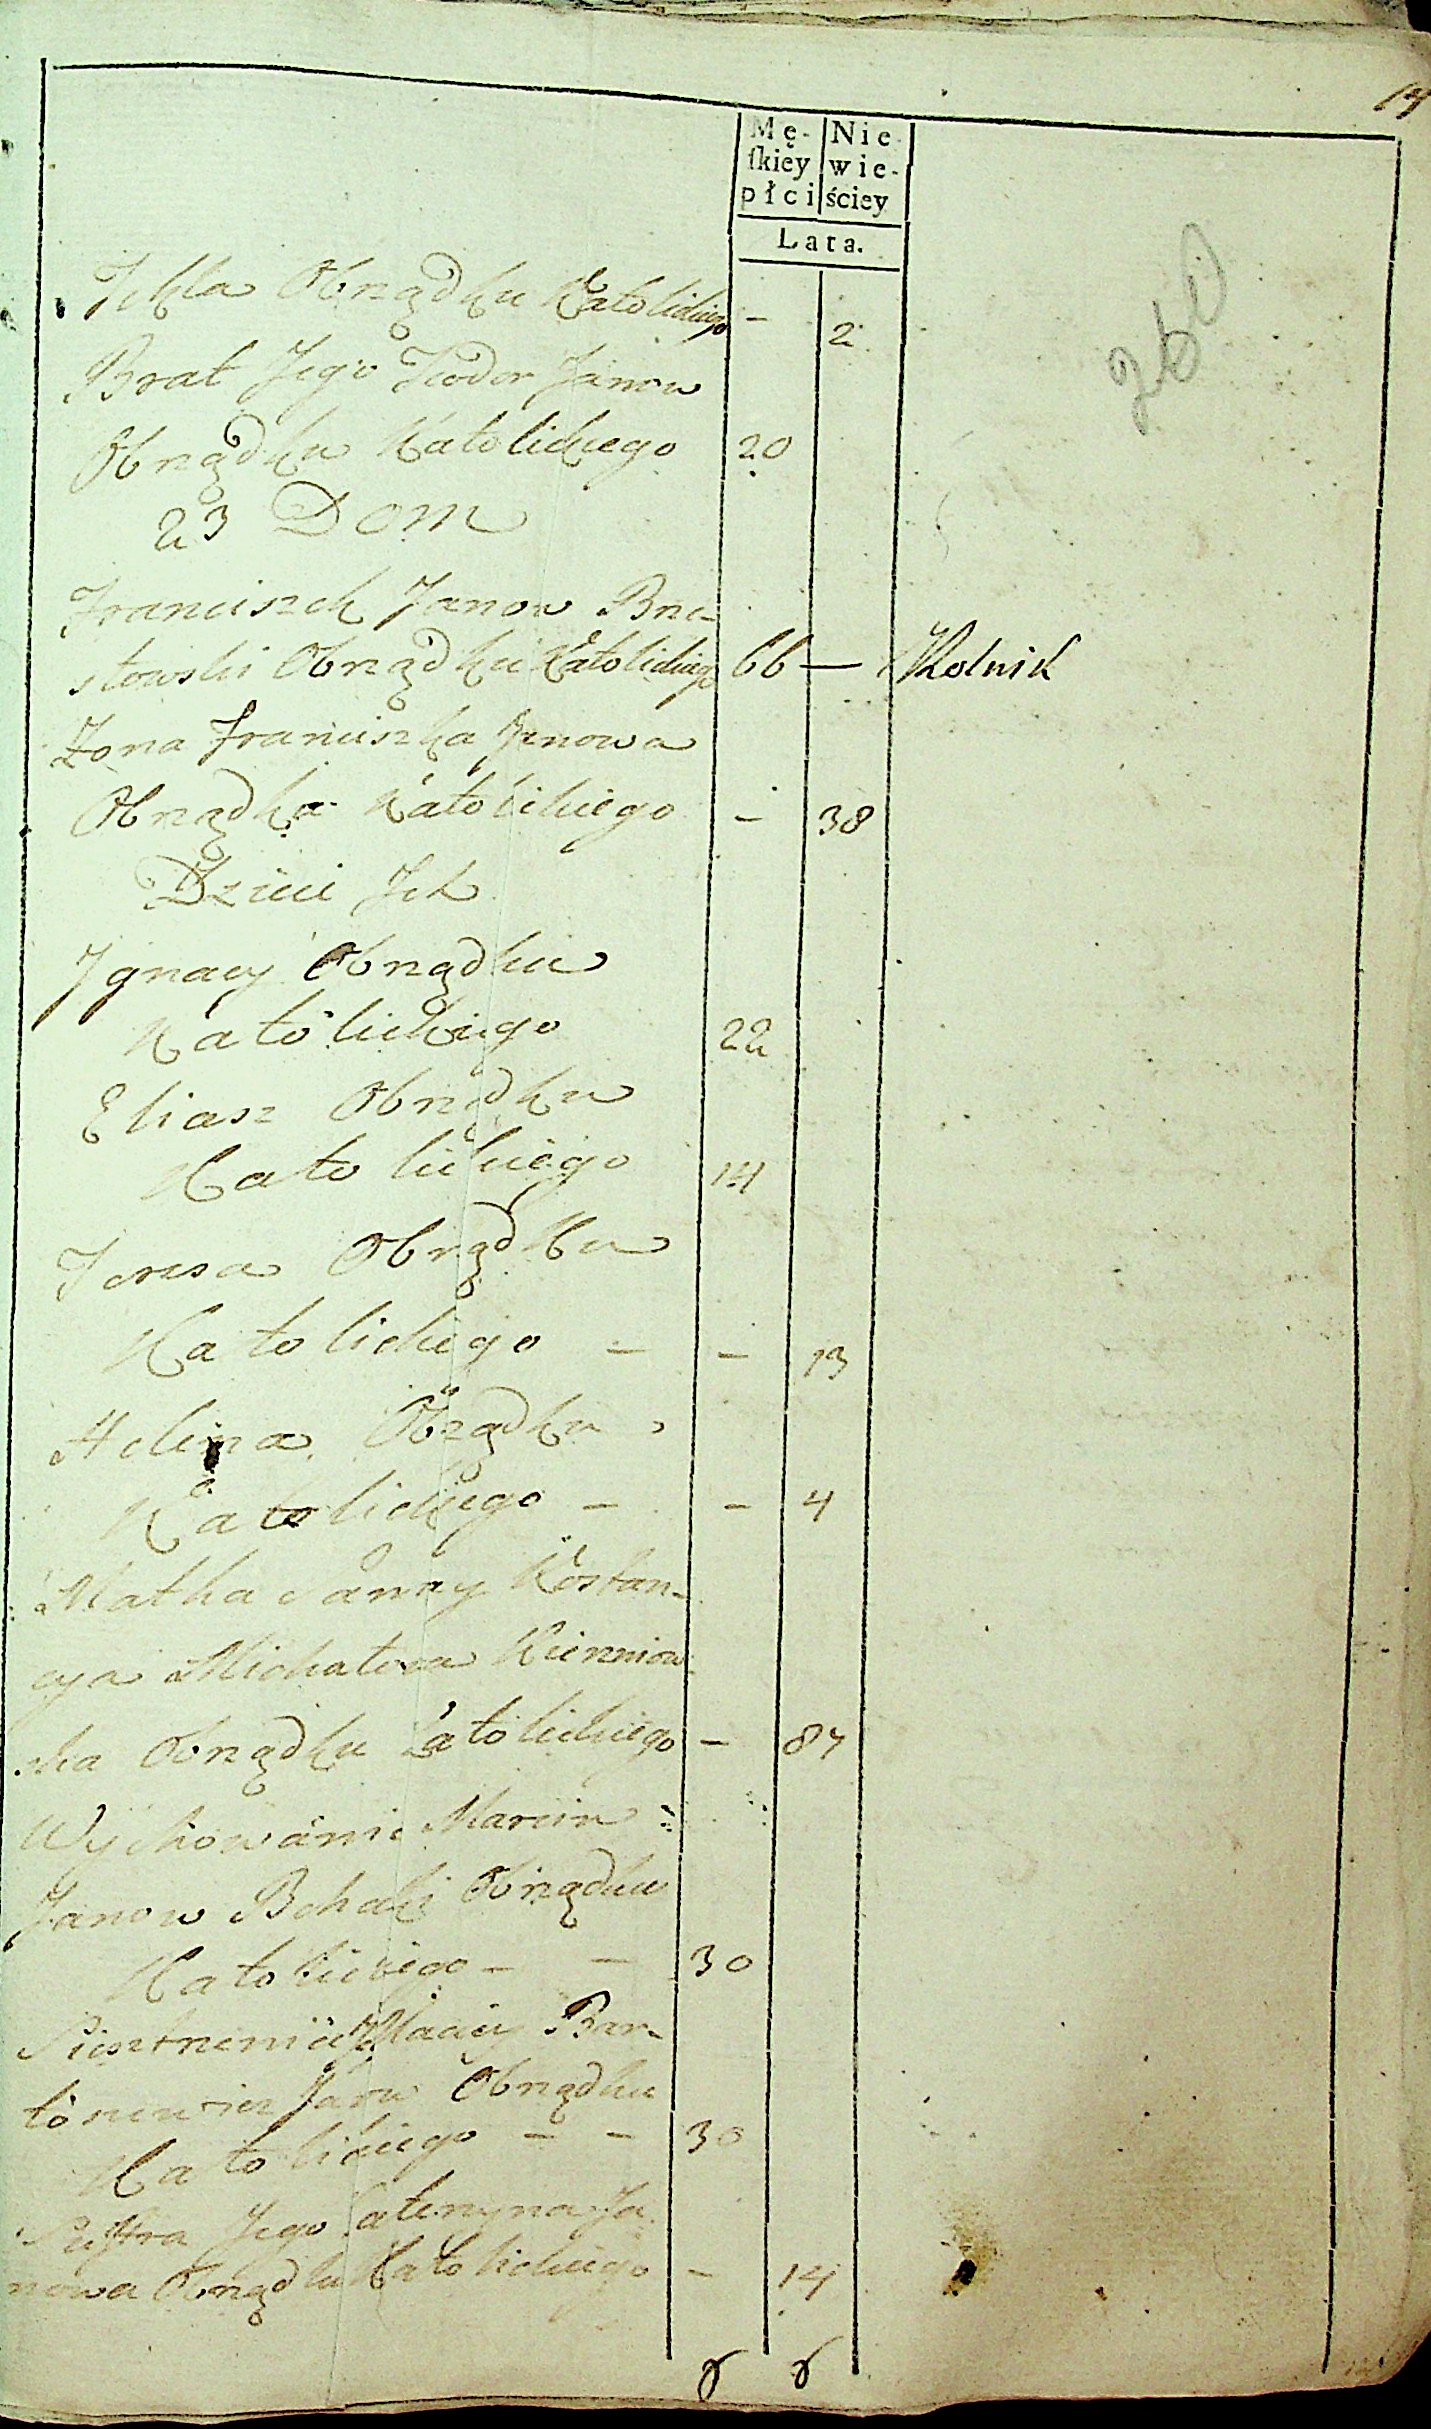 14
Mę- Nie
skiey wie-
płci ściey
Lata.
Tekla Obrządku Katolickiego - 2
Brat Jego Teodor Janow
Obrządku Katolickiego 20
23 Dom
Franciszek Janow Brzo-
stowski Obrządku Katolickiego 66 — Rolnik
Żona Franciszka Janowa
Obrządku Katolickiego - 38
Dzieci Ich
Ignacy Obrządku
Katolickiego 22
Eliasz Obrządku
Katolickiego 14
Teresa Obrządku
Katolickiego - - 13
Helena Obrządku
Katolickiego - - 4
Matka Panny Kostan-
cya Michałowa
ska Obrządku Katolickiego - 87
Wychowaniec Marcin
Janow Obrządku
Katolickiego - - 30
Maciey Bar-
Obrządku
Katolickiego - - 30
Siostra Jego Kateryna Ja
nowa Obrządku Katolickiego - 14
8 8